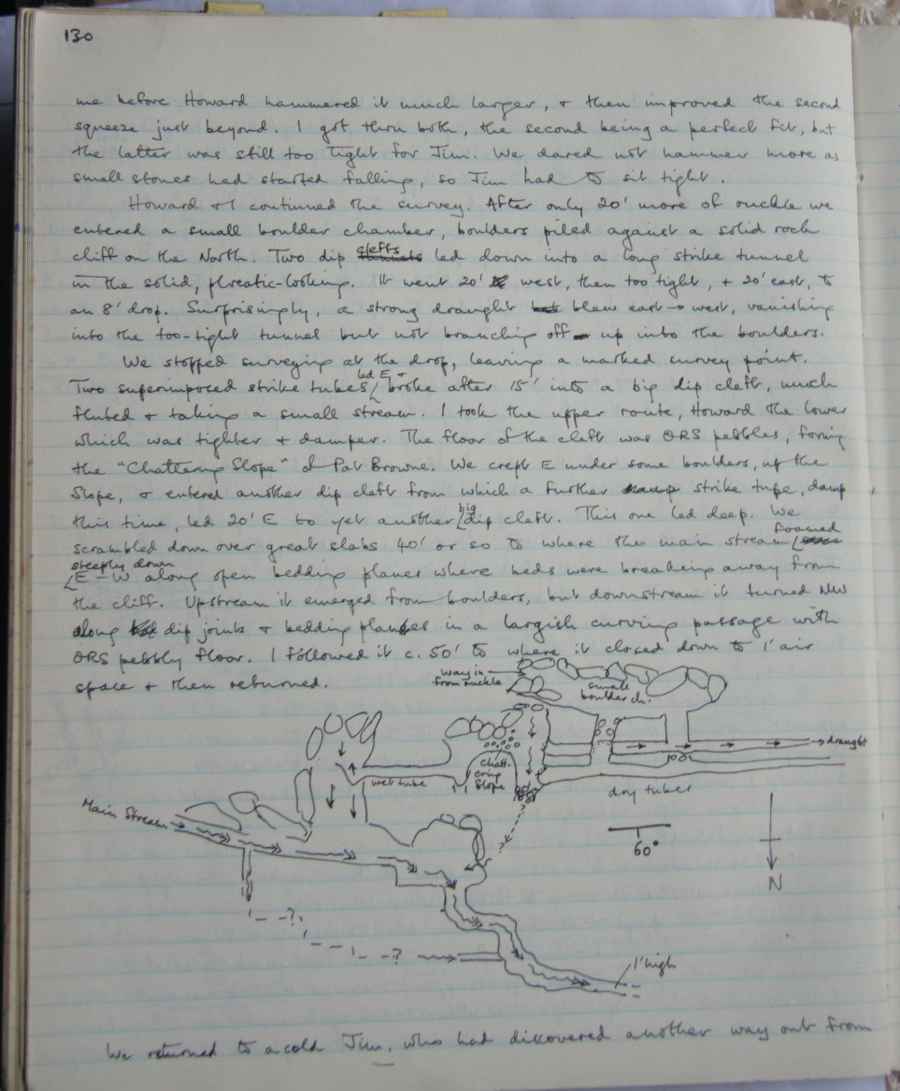 130
me before Howard hammered it much larger, & then improved the second
squeeze just beyond. I got thru both, the second being a perfect fit, but
the latter was still too tight for Jim. We dared not hammer more as
small stones had started falling, so Jim had to sit tight.
Howard & I continued the survey. After only 20' more of ruckle we
entered a small boulder chamber, boulders piled against a solid rock
cliff on the North. Two dip clefts led down into a long strike tunnel
in the solid, phreatic-looking. It went 20' west, then too tight, & 20' east, to
an 8' drop. Surprisingly, a strong draught blew east → west, vanishing
into the too-tight tunnel but not branching off up into the boulders.
We stopped surveying at the drop, leaving a marked survey point.
Two superimposed strike tubes led E & broke after 15' into a big dip cleft, much
fluted & taking a small stream. I took the upper route, Howard the lower
which was tighter & damper. The floor of the cleft was ORS pebbles, forming
the "Chattering Slope" of Pat Browne. We crept E under some boulders, up the
slope, & entered another dip cleft from which a further strike tube, damp
this time, led 20' E to yet another big dip cleft. This one led deep. We
scrambled down over great slabs 40' or so to where the main stream foamed
steeply down
E - W along open bedding planes where beds were breaking away from
the cliff. Upstream it emerged from boulders, but downstream it turned NW
along dip joints & bedding planes in a largish curving passage with
ORS pebbly floor. I followed it c. 50' to where it closed down to 1' air
space & then returned.
way in
from ruckle
small
boulder ch.
→ draught
wet tube
chatt-
ering
slope
dry tubes
Main Stream →
60°
N
?
?
1' high
We returned to a cold Jim, who had discovered another way out from